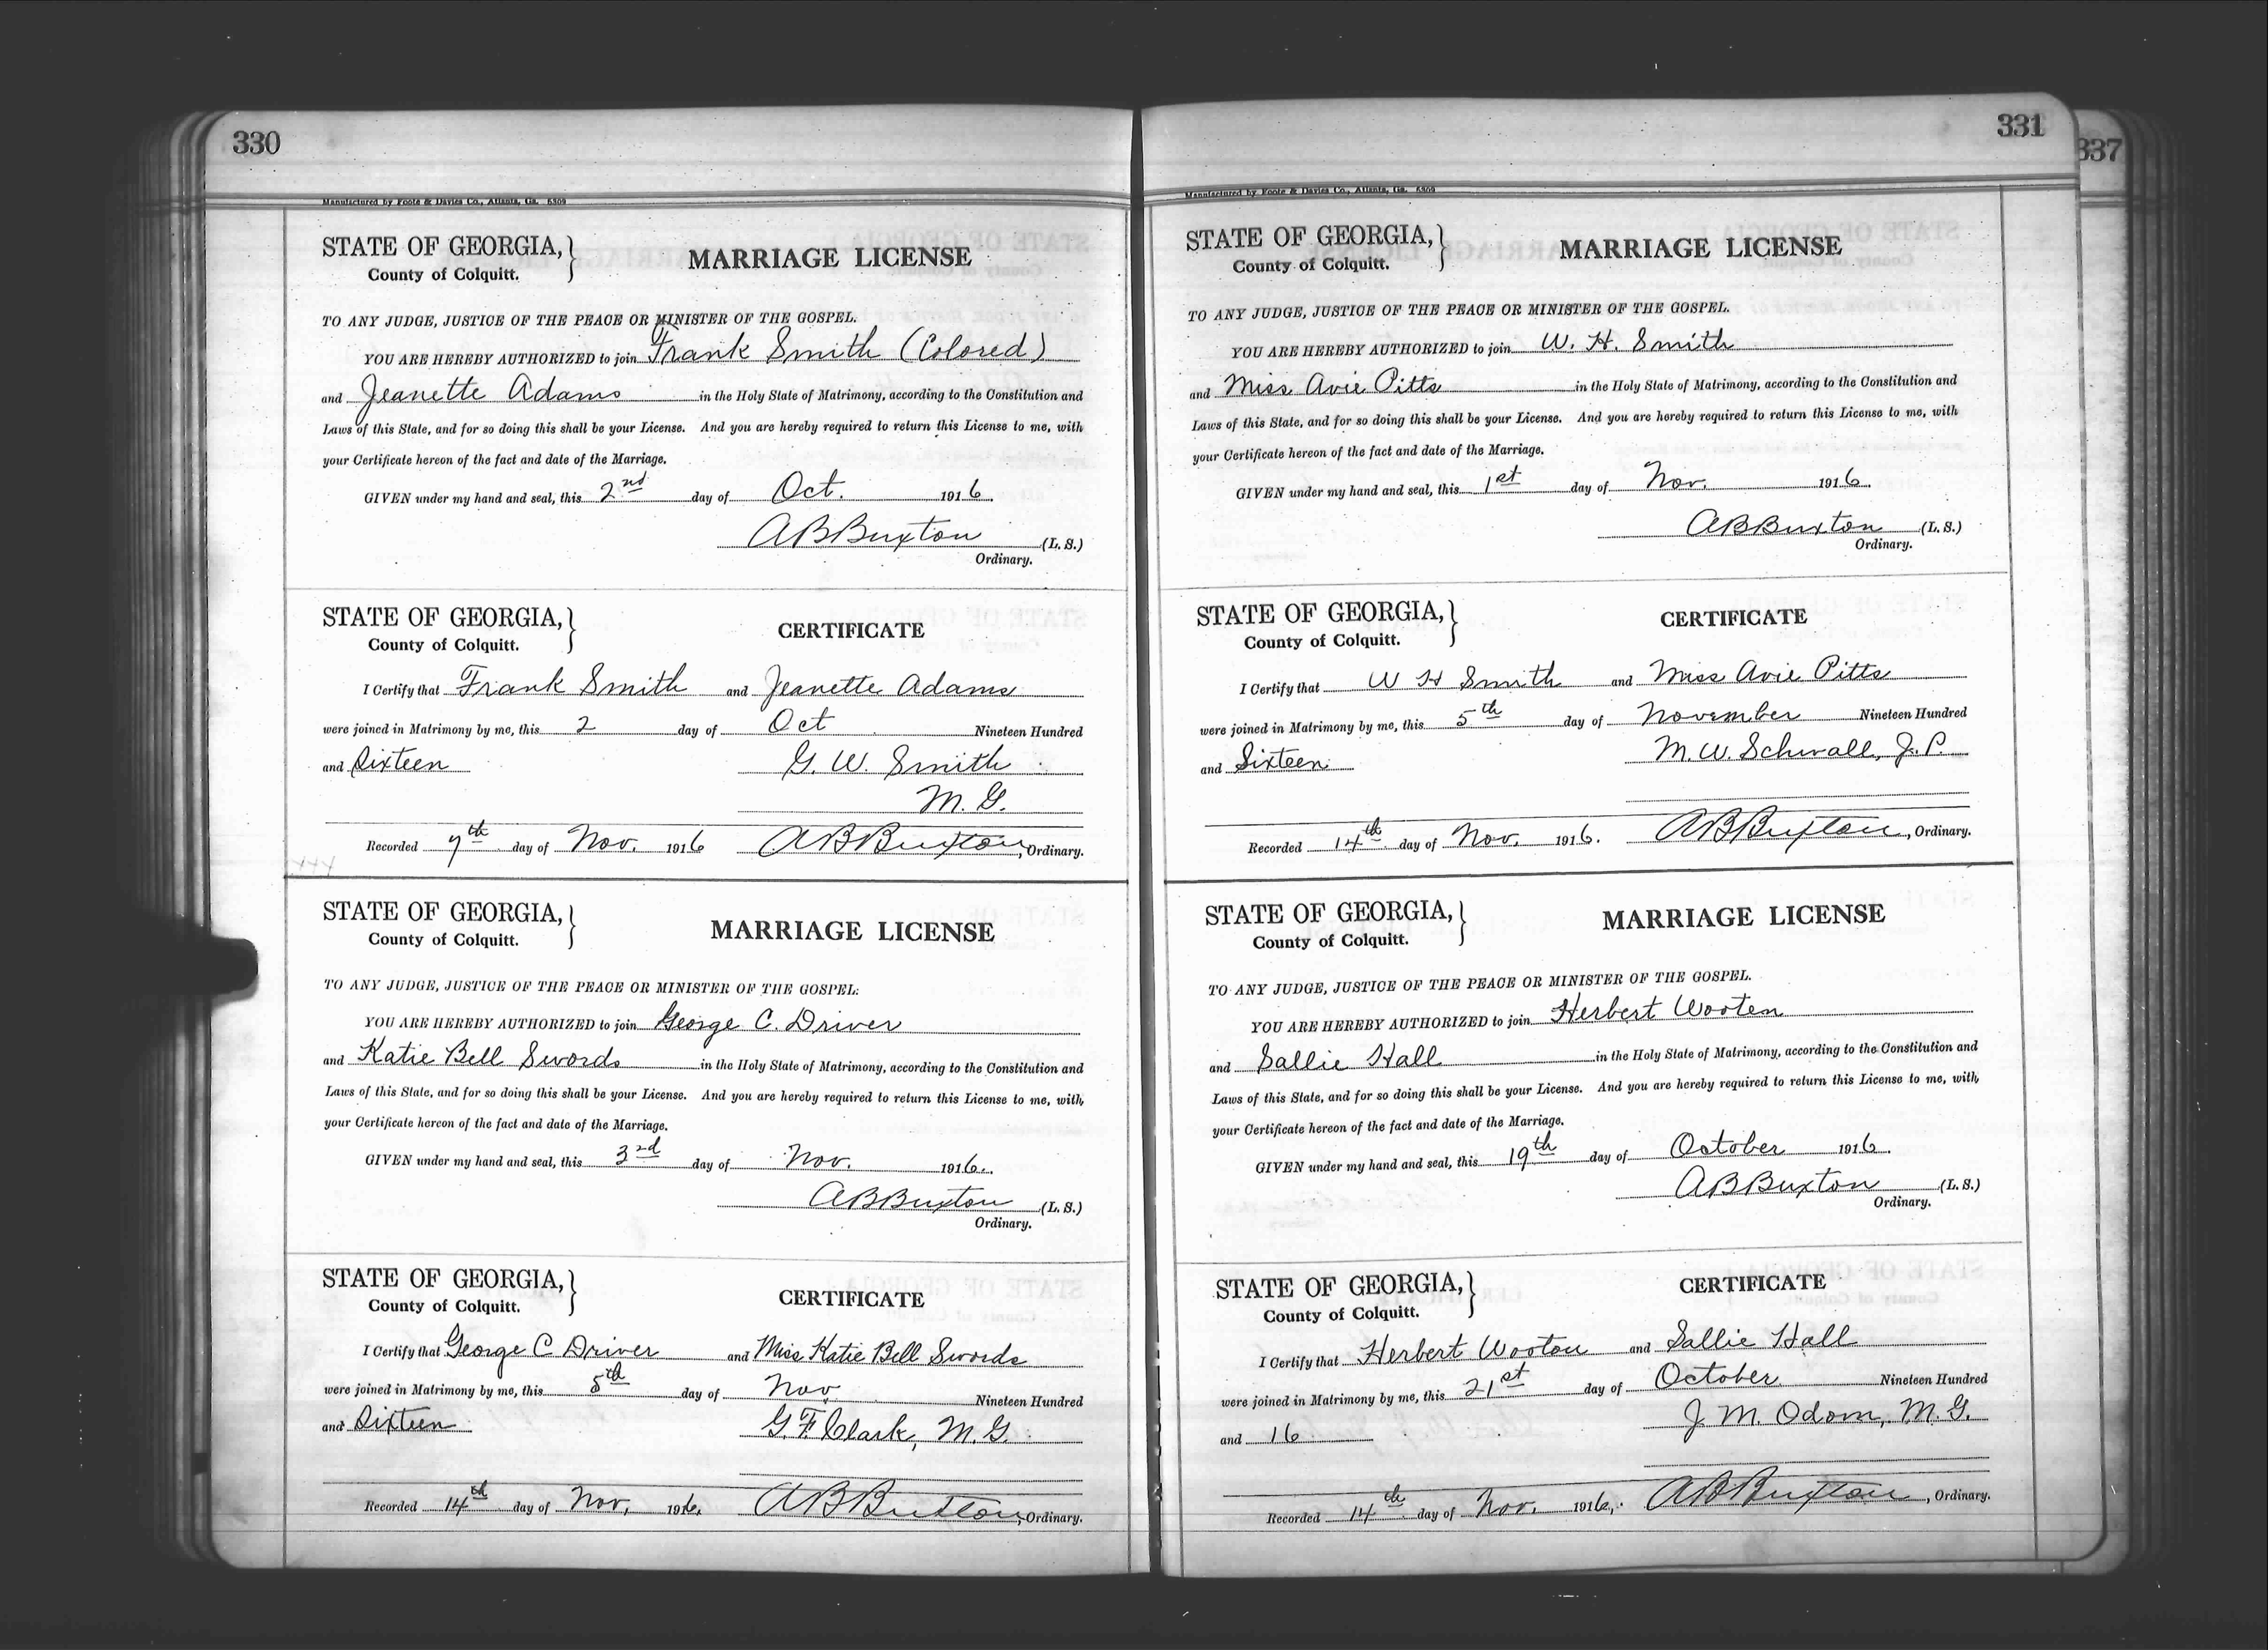 330
Manufactured by Foote & Davies Co., Atlanta, Ga. 5309
STATE OF GEORGIA,
County of Colquitt.
MARRIAGE LICENSE
TO ANY JUDGE, JUSTICE OF THE PEACE OR MINISTER OF THE GOSPEL.
YOU ARE HEREBY AUTHORIZED to join Frank Smith (Colored)
and Jeanette Adams in the Holy State of Matrimony, according to the Constitution and
Laws of this State, and for so doing this shall be your License. And you are hereby required to return this License to me, with
your Certificate hereon of the fact and date of the Marriage.
GIVEN under my hand and seal, this 2nd day of Oct. 1916.
A B Buxton (L. S.)
Ordinary.
STATE OF GEORGIA,
County of Colquitt.
CERTIFICATE
I Certify that Frank Smith and Jeanette Adams
were joined in Matrimony by me, this 2 day of Oct Nineteen Hundred
and Sixteen G. W. Smith
M. G.
Recorded 7th day of Nov. 1916 A B Buxton, Ordinary.
STATE OF GEORGIA,
County of Colquitt.
MARRIAGE LICENSE
TO ANY JUDGE, JUSTICE OF THE PEACE OR MINISTER OF THE GOSPEL.
YOU ARE HEREBY AUTHORIZED to join George C. Driver
and Katie Bell Swords in the Holy State of Matrimony, according to the Constitution and
Laws of this State, and for so doing this shall be your License. And you are hereby required to return this License to me, with
your Certificate hereon of the fact and date of the Marriage.
GIVEN under my hand and seal, this 3rd day of Nov. 1916.
A B Buxton (L. S.)
Ordinary.
STATE OF GEORGIA,
County of Colquitt.
CERTIFICATE
I Certify that George C Driver and Miss Katie Bell Swords
were joined in Matrimony by me, this 5th day of Nov Nineteen Hundred
and Sixteen G. F. Clark, M. G.
Recorded 14th day of Nov. 1916. A B Buxton, Ordinary.
331
337
Manufactured by Foote & Davies Co., Atlanta, Ga. 5309
STATE OF GEORGIA,
County of Colquitt.
MARRIAGE LICENSE
TO ANY JUDGE, JUSTICE OF THE PEACE OR MINISTER OF THE GOSPEL.
YOU ARE HEREBY AUTHORIZED to join W. H. Smith
and Miss Avie Pitts in the Holy State of Matrimony, according to the Constitution and
Laws of this State, and for so doing this shall be your License. And you are hereby required to return this License to me, with
your Certificate hereon of the fact and date of the Marriage.
GIVEN under my hand and seal, this 1st day of Nov. 1916.
A B Buxton (L. S.)
Ordinary.
STATE OF GEORGIA,
County of Colquitt.
CERTIFICATE
I Certify that W H Smith and Miss Avie Pitts
were joined in Matrimony by me, this 5th day of November Nineteen Hundred
and Sixteen. M. W. Schwall, J. P.
Recorded 14th day of Nov. 1916. A B Buxton, Ordinary.
STATE OF GEORGIA,
County of Colquitt.
MARRIAGE LICENSE
TO ANY JUDGE, JUSTICE OF THE PEACE OR MINISTER OF THE GOSPEL.
YOU ARE HEREBY AUTHORIZED to join Herbert Wooten
and Sallie Hall in the Holy State of Matrimony, according to the Constitution and
Laws of this State, and for so doing this shall be your License. And you are hereby required to return this License to me, with
your Certificate hereon of the fact and date of the Marriage.
GIVEN under my hand and seal, this 19th day of October 1916.
A B Buxton (L. S.)
Ordinary.
STATE OF GEORGIA,
County of Colquitt.
CERTIFICATE
I Certify that Herbert Wooton and Sallie Hall
were joined in Matrimony by me, this 21st day of October Nineteen Hundred
and 16 J. M. Odom, M. G.
Recorded 14th day of Nov. 1916. A B Buxton, Ordinary.